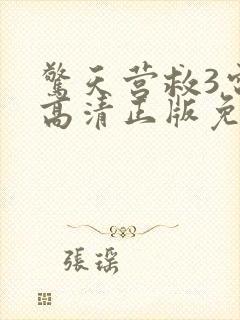 驚天营救3
高清正版免
張瑶